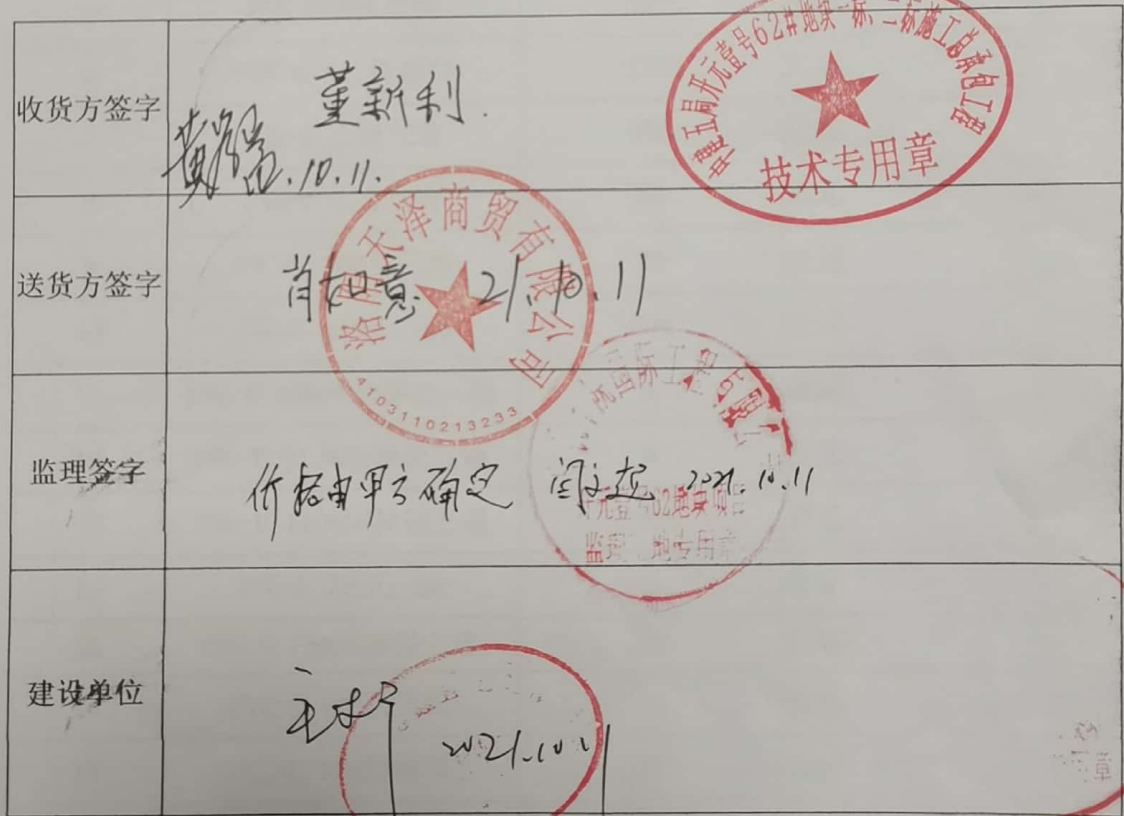 收货方签字
董新利.
.10.11.
中建五局开元壹号62#地块一标、二标施工总承包工程
技术专用章
送货方签字
肖如意 21.10.11
洛阳天泽商贸有限公司
4103110213233
监理签字
价格由甲方确定 闫文超 2021.10.11
国际工程有限公
开元壹号62地块项目
监理 地专用章
建设单位
2021.10.11
章